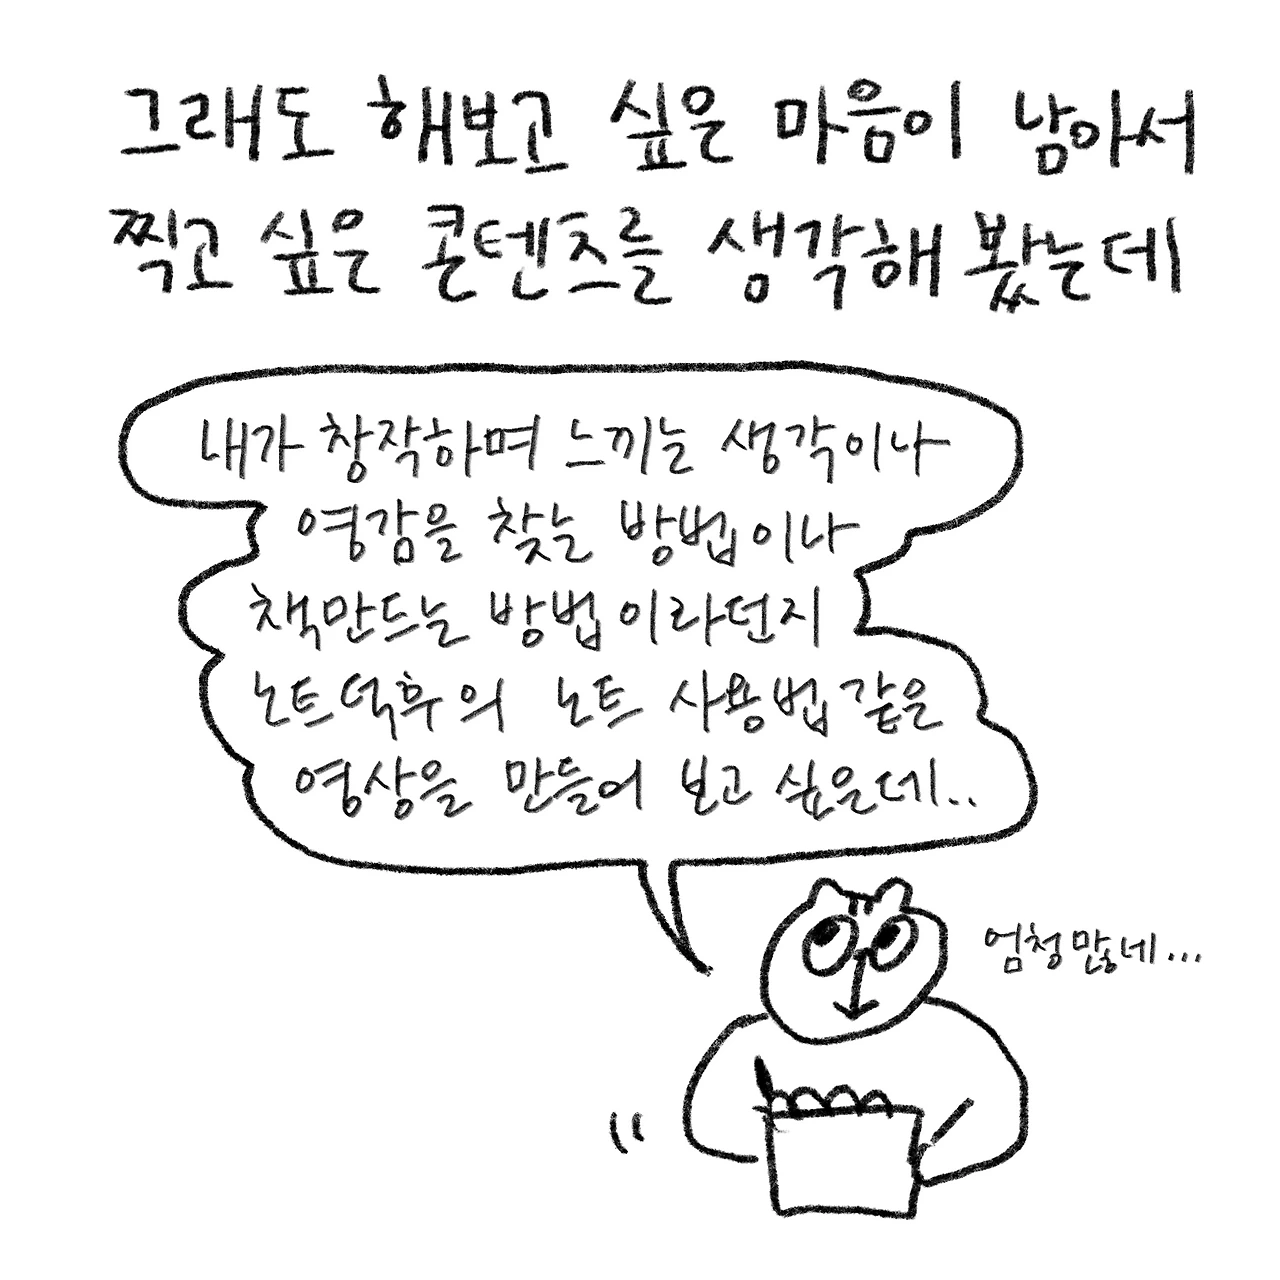 그래도 해보고 싶은 마음이 남아서
찍고 싶은 콘텐츠를 생각해 봤는데
내가 창작하며 느끼는 생각이나
영감을 찾는 방법이나
책만드는 방법이라던지
노트덕후의 노트 사용법 같은
영상을 만들어 보고 싶은데..
엄청많네...